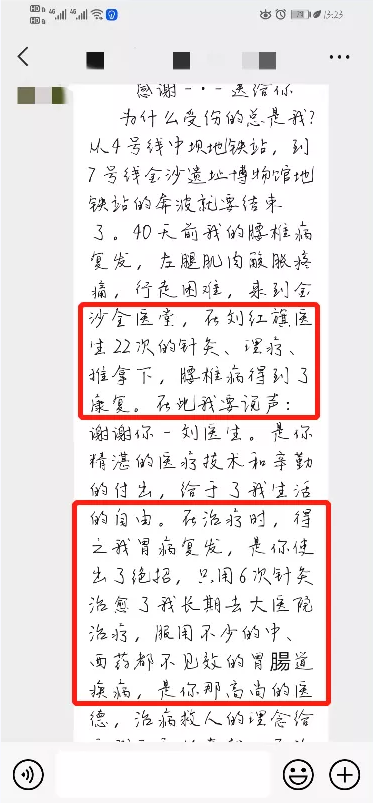 13:23
感谢-·-送给你
为什么受伤的总是我?
从4号线中坝地铁站,到
7号线金沙遗址博物馆地
铁站的奔波就要结束
了。40天前我的腰椎病
复发,左腿肌肉酸胀疼
痛,行走困难,来到金
沙全医堂,在刘红旗医
生22次的针灸、理疗、
推拿下,腰椎病得到了
康复。在此我要说声:
谢谢你-刘医生。是你
精湛的医疗技术和辛勤
的付出,给于了我生活
的自由。在治疗时,得
之我胃病复发,是你使
出了绝招,只用6次针灸
治愈了我长期去大医院
治疗,服用不少的中、
西药都不见效的胃腸道
疾病,是你那高尚的医
德,治病救人的理念给